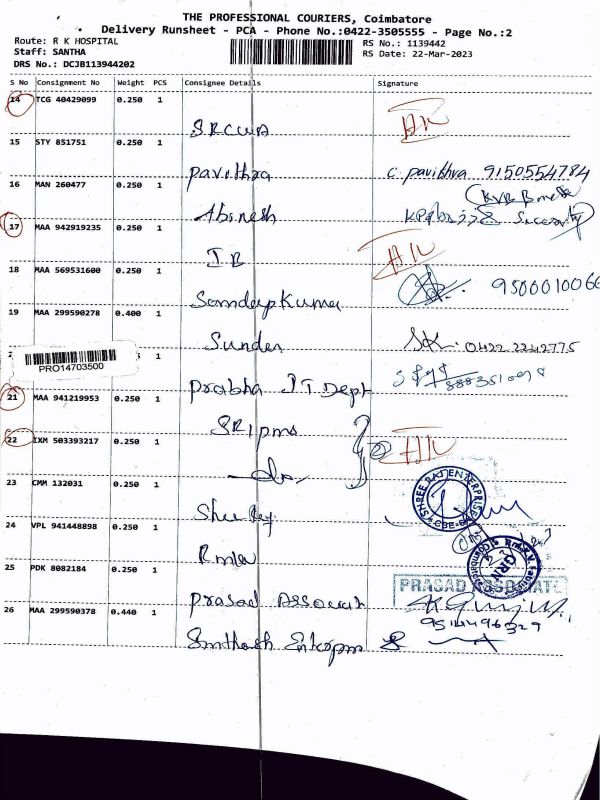 THE PROFESSIONAL COURIERS, Coimbatore
Delivery Runsheet - PCA - Phone No.:0422-3505555 - Page No.:2
Route: R K HOSPITAL
RS No.: 1139442
Staff: SANTHA
RS Date: 22-Mar-2023
DRS No.: DCJB113944202
S No Consignment No Weight PCS Consignee Details Signature
14 TCG 40429099 0.250 1
SRCWA
15 STY 851751 0.250 1
Pavithra C. Pavithra 9150554784
16 MAN 260477 0.250 1
Abinesh
17 MAA 942919235 0.250 1
IB
18 MAA 569531600 0.250 1
SamdeepKumar 9500010066
19 MAA 299590278 0.400 1
Sunder SK. 0422 2242775
1
PRO14703500
Prabha IT Dept
21 MAA 941219953 0.250 1
SRIpms
22 IXM 503393217 0.250 1
-do-
23 CMM 132031 0.250 1
SHREE RAJ ENTERPRISES
24 VPL 941448898 0.250 1
25 PDK 8082184 0.250 1
GRN
PRASAD ASSOCIATE
Prasad Associate
26 MAA 299590378 0.440 1